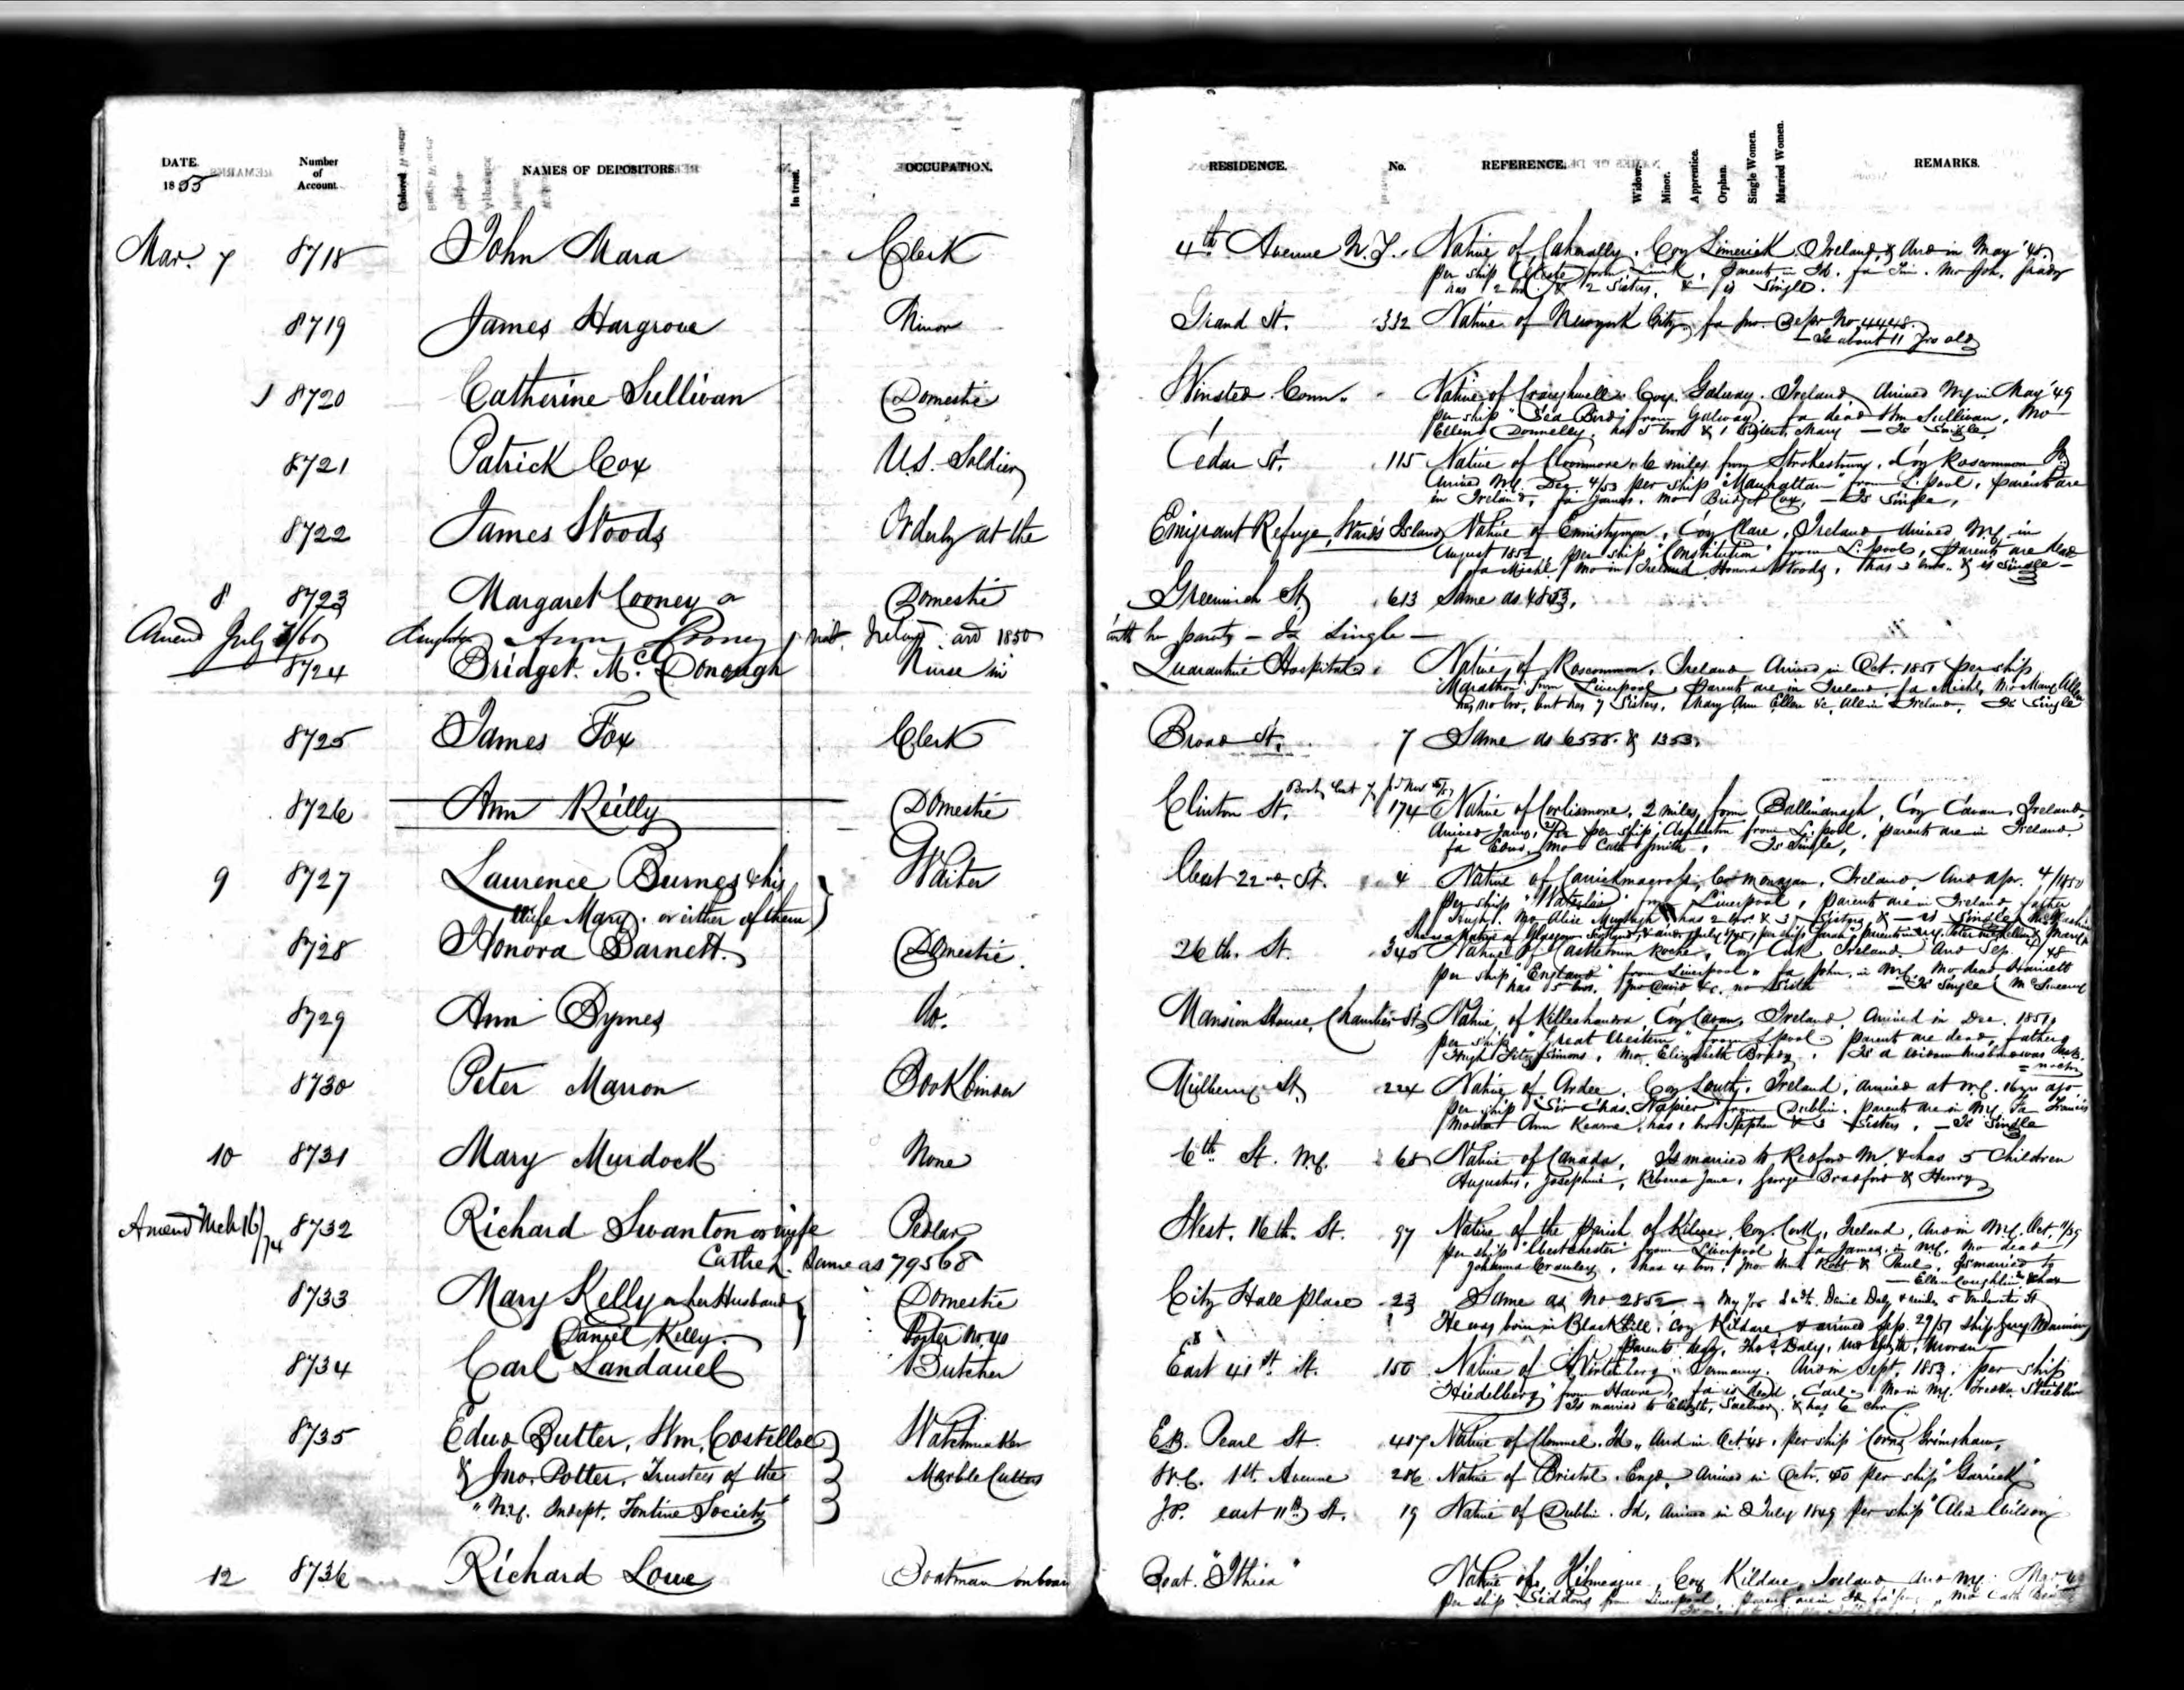 DATE. 1855
Number of Account
NAMES OF DEPOSITORS.
In trust.
OCCUPATION.
RESIDENCE.
No.
REFERENCE.
Widow.
Minor.
Apprentice.
Orphan.
Single Women.
Married Women.
REMARKS.
Mar. 7 8718 John Mara Clerk 4th Avenue N.Y. Native of Coy Limerick Ireland, & Arr in May '48
per ship from Limk, parents in Id. fa Tim. mo Joh. Grady
has 2 bro. & 2 Sisters, & is Single.
8719 James Hargrove Minor Grand St. 332 Native of Newyork City, fa Jno. Depr No. 4448.
Is about 11 yrs old
8720 Catherine Sullivan Domestic Winsted Conn. Native of Craughwell Coy. Galway. Ireland Arrived NY in May '49
per ship "Sea Bird" from Galway, fa dead Wm Sullivan, Mo
Ellen Donnelly. has 5 bros & 1 Sister, Mary — Is Single.
8721 Patrick Cox U.S. Soldier Cedar St. 115 Native of Cloonmore 6 miles from Strokestown, Coy Roscommon
Arrived NY. Dec 4/53 per ship "Manhattan" from L.pool, parents are
in Ireland, fa James. mo Bridget Cox, — Is Single,
8722 James Woods Orderly at the Emigrant Refuge, Wards Island Native of Ennistymon, Coy Clare, Ireland Arrived NY in
August 1852, per ship "Constitution" from L.pool, Parents are dead
fa Michl mo in Ireland Honora Woods, has 3 bros. & is Single —
8 8723 Margaret Cooney or Domestic Greenwich St. 613 Same as 4803.
Amend July /60 daughter Ann Cooney nat. Ireland arr 1850 with her parents — Is Single —
8724 Bridget McDonough Nurse in Quarantine Hospital Native of Roscommon, Ireland Arrived in Oct. 1851 per ship
"Marathon" from Liverpool, Parents are in Ireland, fa Michl, Mo Mary Allen
has no bro, but has 7 Sisters, Mary Ann Ellen &c, All in Ireland, Is Single
8725 James Fox Clerk Broad St. 7 Same as 6538. & 1353.
8726 Ann Reilly Domestic Clinton St. 174 Native of Corlismore, 2 miles from Ballinanagh, Coy Cavan, Ireland.
Arrived per ship Ashburton from L.pool, parents are in Ireland.
fa Edwd. mo Cath Smith, Is Single,
9 8727 Laurence Burnes & his Waiter West 22nd St. 4 Native of Carrickmacross, Co monagan, Ireland, Arr Apr. 4/1850
wife Mary. or either of them per ship "Waterloo" from Liverpool, parents are in Ireland, father
Hugh. Mo Alice Murtagh has 2 bro. & 3 Sisters, & — is Single
8728 Honora Barnett. Domestic. 26th. St. 345 Native of Castletown Roche, Coy Cork Ireland Arr Sep. /48
per ship "England" from Liverpool, fa John, in NY. Mo dead Harriett
has 5 bros. Jno David &c. no Sister — Is Single McSweeny
8729 Ann Dymes Do. Mansion House, Chamber St. Native of Killeshandra, Coy Cavan, Ireland, Arrived in Dec. 1851,
per ship "Great Western" from Lpool Parents are dead, father
Hugh Fitzsimons, Mo. Elizabeth Brady, Is a widow husband was
8730 Peter Marron Bookbinder Mulberry St. 224 Native of Ardee, Coy Louth, Ireland, arrived at NY. 16 yrs ago
per ship "Sir Chas. Napier" from Dublin. Parents are in NY Fa Francis
Mother Ann Kearne, has 1 bro Stephen & 3 Sisters, — Is Single
10 8731 Mary Murdock None 6th St. NY. 68 Native of Canada, Is married to Redford M. & has 5 Children
Augustus, Josephine, Rebecca Jane, George Bradford & Henry
Amend Mch 16/74 8732 Richard Swanton or wife Pedlar West. 16th. St. 97 Native of the parish of Coy. Cork, Ireland, Arr in NY. Oct. /39
Cathe L. Same as 79568 per ship "Westchester" from Liverpool, fa James. in NY. Mo dead
Johanna Crowley, has 4 bro, Jno Robt & Paul, Is married to
Ellen Coughlin, & has
8733 Mary Kelly or her Husband Domestic City Hall place 23 Same as No 2852.
Daniel Kelly. Porter No. 40 He was born in Black Hill, Coy Kildare & arrived Sep. 29/51 ship
8734 Carl Landauel Butcher East 41st St. 150 Native of Wirtemberg Germany. Arr in Sept. 1853, per ship
"Heidelberg" from Havre, fa is dead, Carl. Mo in NY.
Is married to & has 6 chn
8735 Edwd Butter, Wm. Costelloe Watchmaker E.B. Pearl St. 407 Native of Clonmel. Id., Arr in Oct '48. per ship "Corns Grinshaw,
& Jno. Potter. Trustees of the Marble Cutters W.C. 1st. Avenue 206 Native of Bristol. Engd Arrived in Octr. 50 per ship "Garrick"
"N.Y. Indept. Tontine Society" J.P. east 11th St. 19 Native of Dublin. Id, Arrived in July 1849 per ship
12 8736 Richard Lowe Boatman on board Boat. "Ithica" Native of Kilmeague, Coy Kildare, Ireland Arr NY.
per ship Siddons from Liverpool, parents are in Id